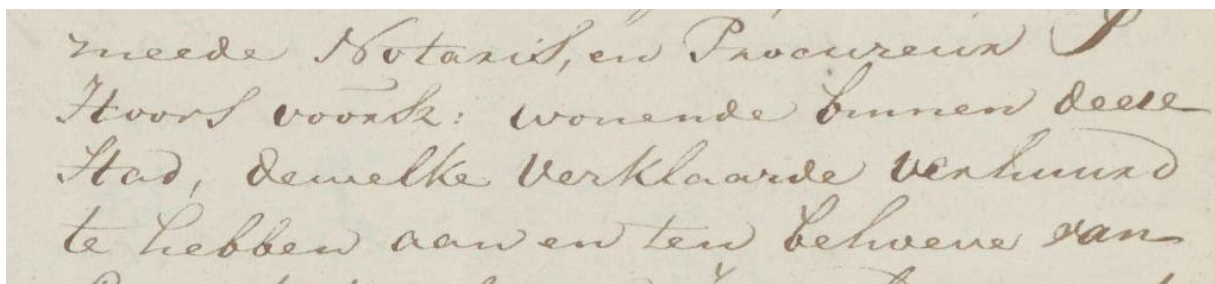 meede Notaris, en Procureur
Hoors voorsz: wonende binnen deese
Stad, dewelke verklaarde verhuurd
te hebben aan en ten behoeve van